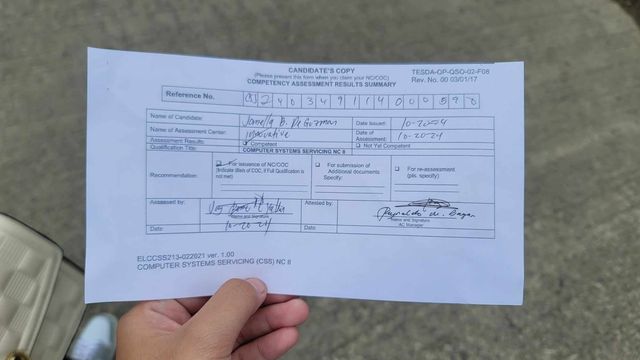 CANDIDATE'S COPY
(Please present this form when you claim your NC/COC)
COMPETENCY ASSESSMENT RESULTS SUMMARY
TESDA-OP-QSO-02-F08
Rev. No. 00 03/01/17
Reference No.
Name of Candidate: B. De Guzman Date Issued: 10-20-24
Name of Assessment Center: Innovative Date of Assessment: 10-20-24
Assessment Results: Competent Not Yet Competent
Qualification Title: COMPUTER SYSTEMS SERVICING NC II
Recommendation:
For issuance of NC/COC
(Indicate title/s of COC, if Full Qualification is not met)
For submission of Additional documents
Specify:
For re-assessment
(pls. specify)
Assessed by:
Name and Signature
Attested by:
Reynaldo
Name and Signature
AC Manager
Date 10-20-24 Date
ELCCSS213-022021 ver. 1.00
COMPUTER SYSTEMS SERVICING (CSS) NC II